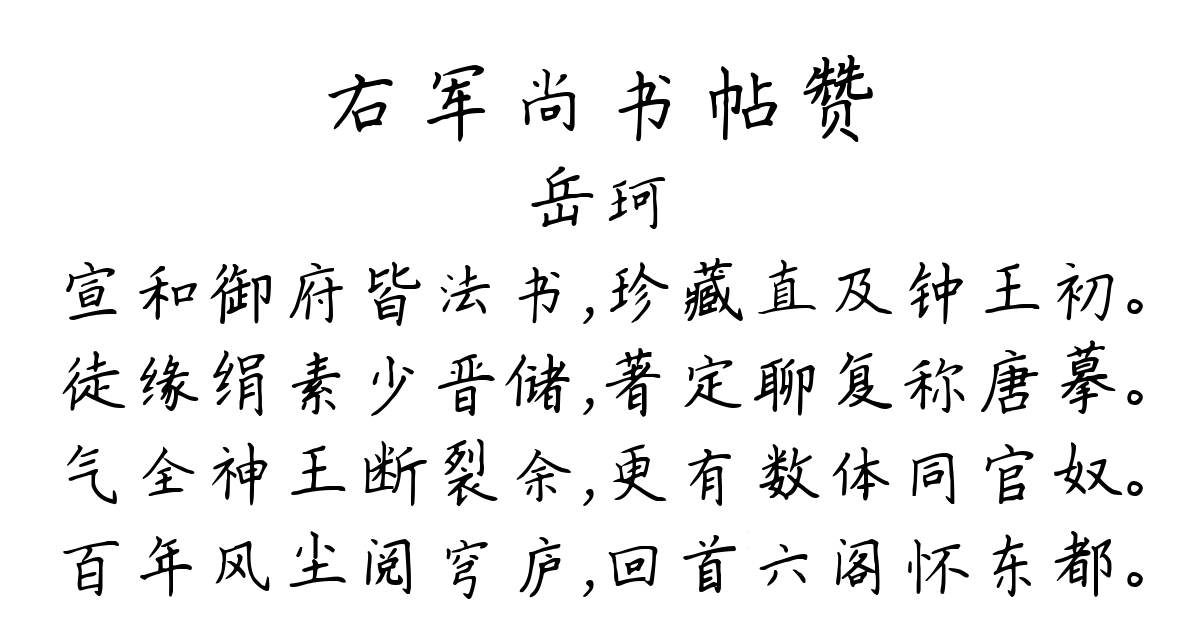 右军尚书帖赞
岳珂
宣和御府皆法书,珍藏直及钟王初。
徒缘绢素少晋储,著定聊复称唐摹。
气全神王断裂余,更有数体同官奴。
百年风尘阅穹庐,回首六阁怀东都。